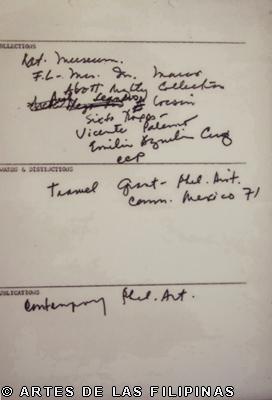 OLLECTIONS
Nat. Museum.
F.L - Mrs. Im. Marcos
Abott Realty Collection
Legaspi
Sixto Roxas -
Vicente Paterno
Emilio Aguilar Cruz
CCP
WARDS & DISTINCTIONS
Travel Grant - Phil. Art.
Comm. Mexico 71
UBLICATIONS
Contempory Phil. Art.
© ARTES DE LAS FILIPINAS